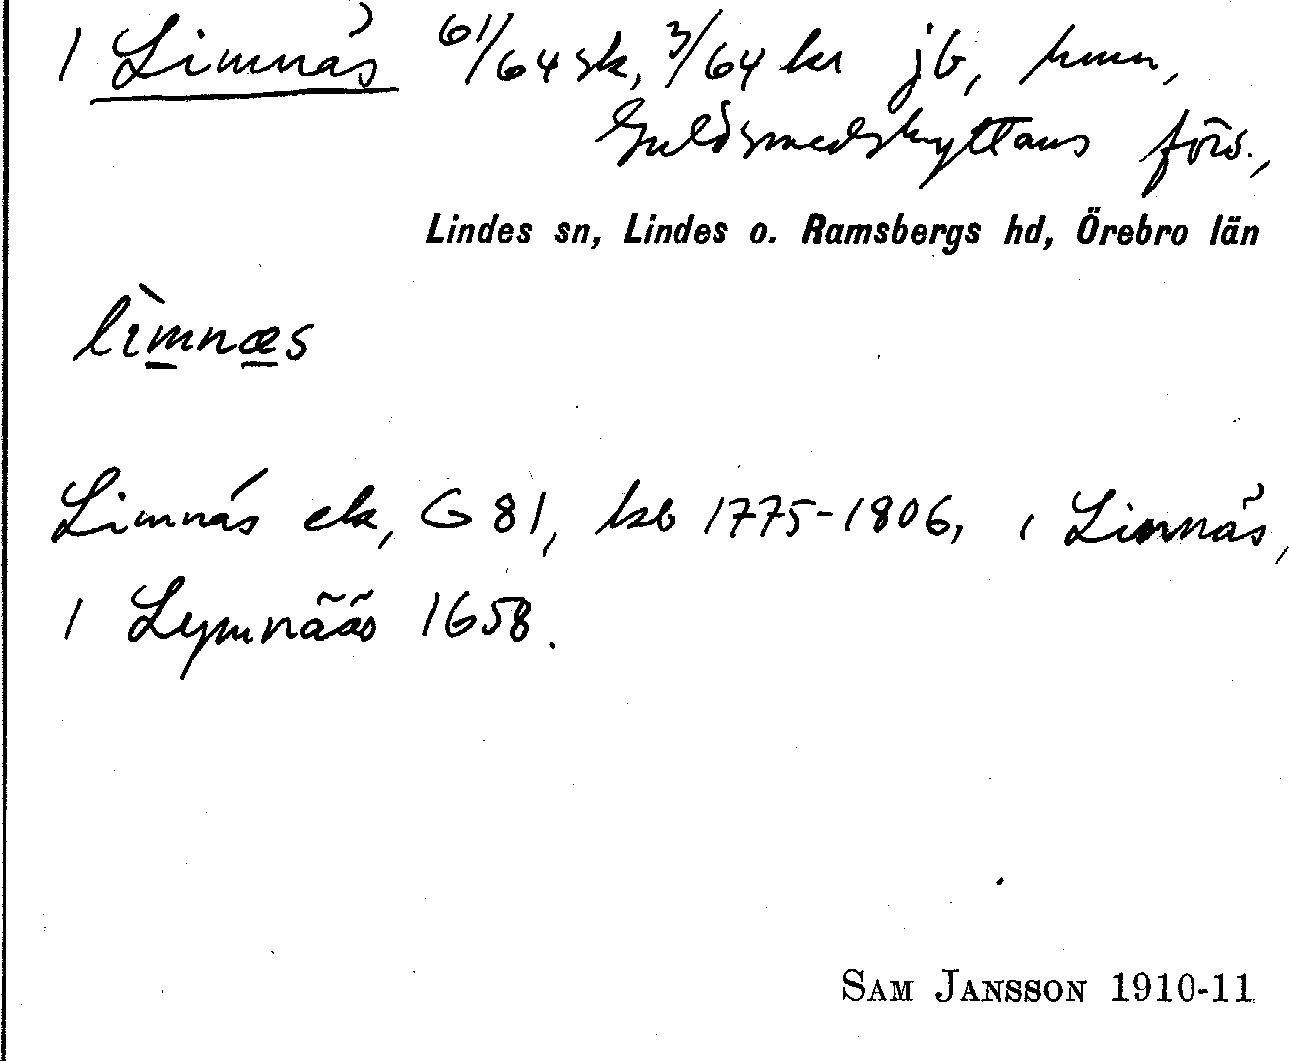 1 Limnäs 61/64 sk, 3/64 kr jb, hmn,
Guldsmedshyttans förs.,
Lindes sn, Lindes o. Ramsbergs hd, Örebro län
lìmnæs
Limnäs ek, G 81, kb 1775-1806, 1 Limnäs,
1 Lymnääs 1658.
SAM JANSSON 1910-11